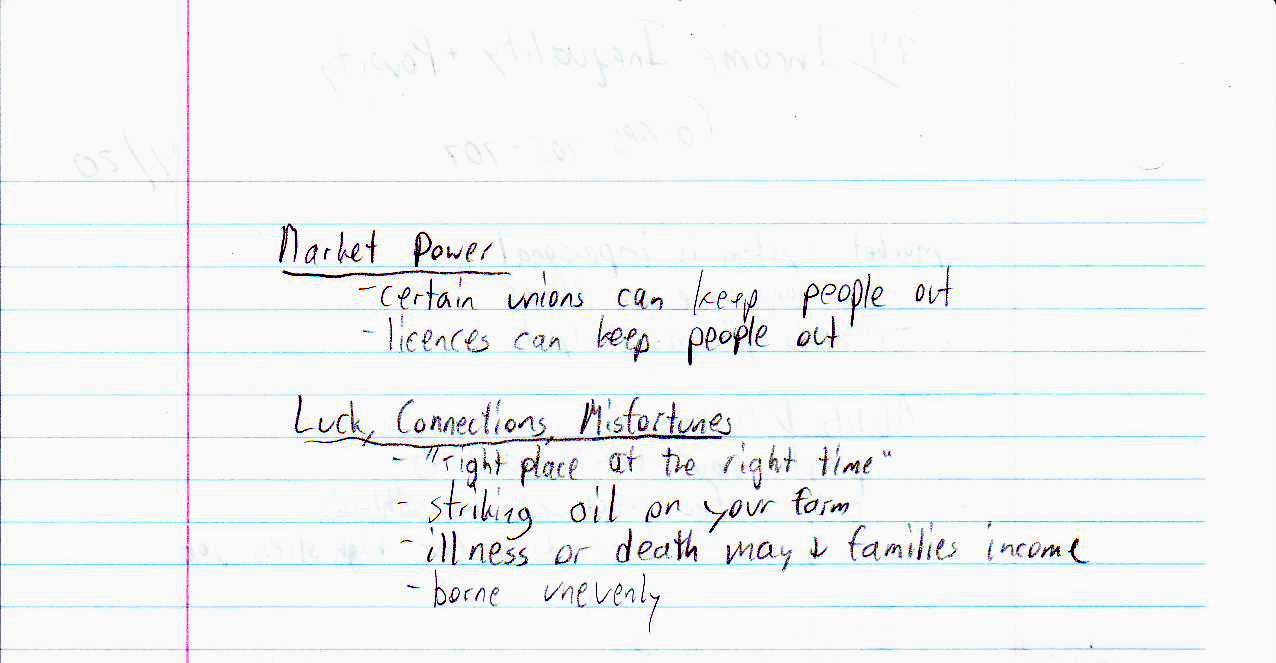 Market Power
- certain unions can keep people out
- licences can keep people out
Luck, Connections, Misfortunes
- "right place at the right time"
- striking oil on your farm
- illness or death may ↓ families income
- borne unevenly